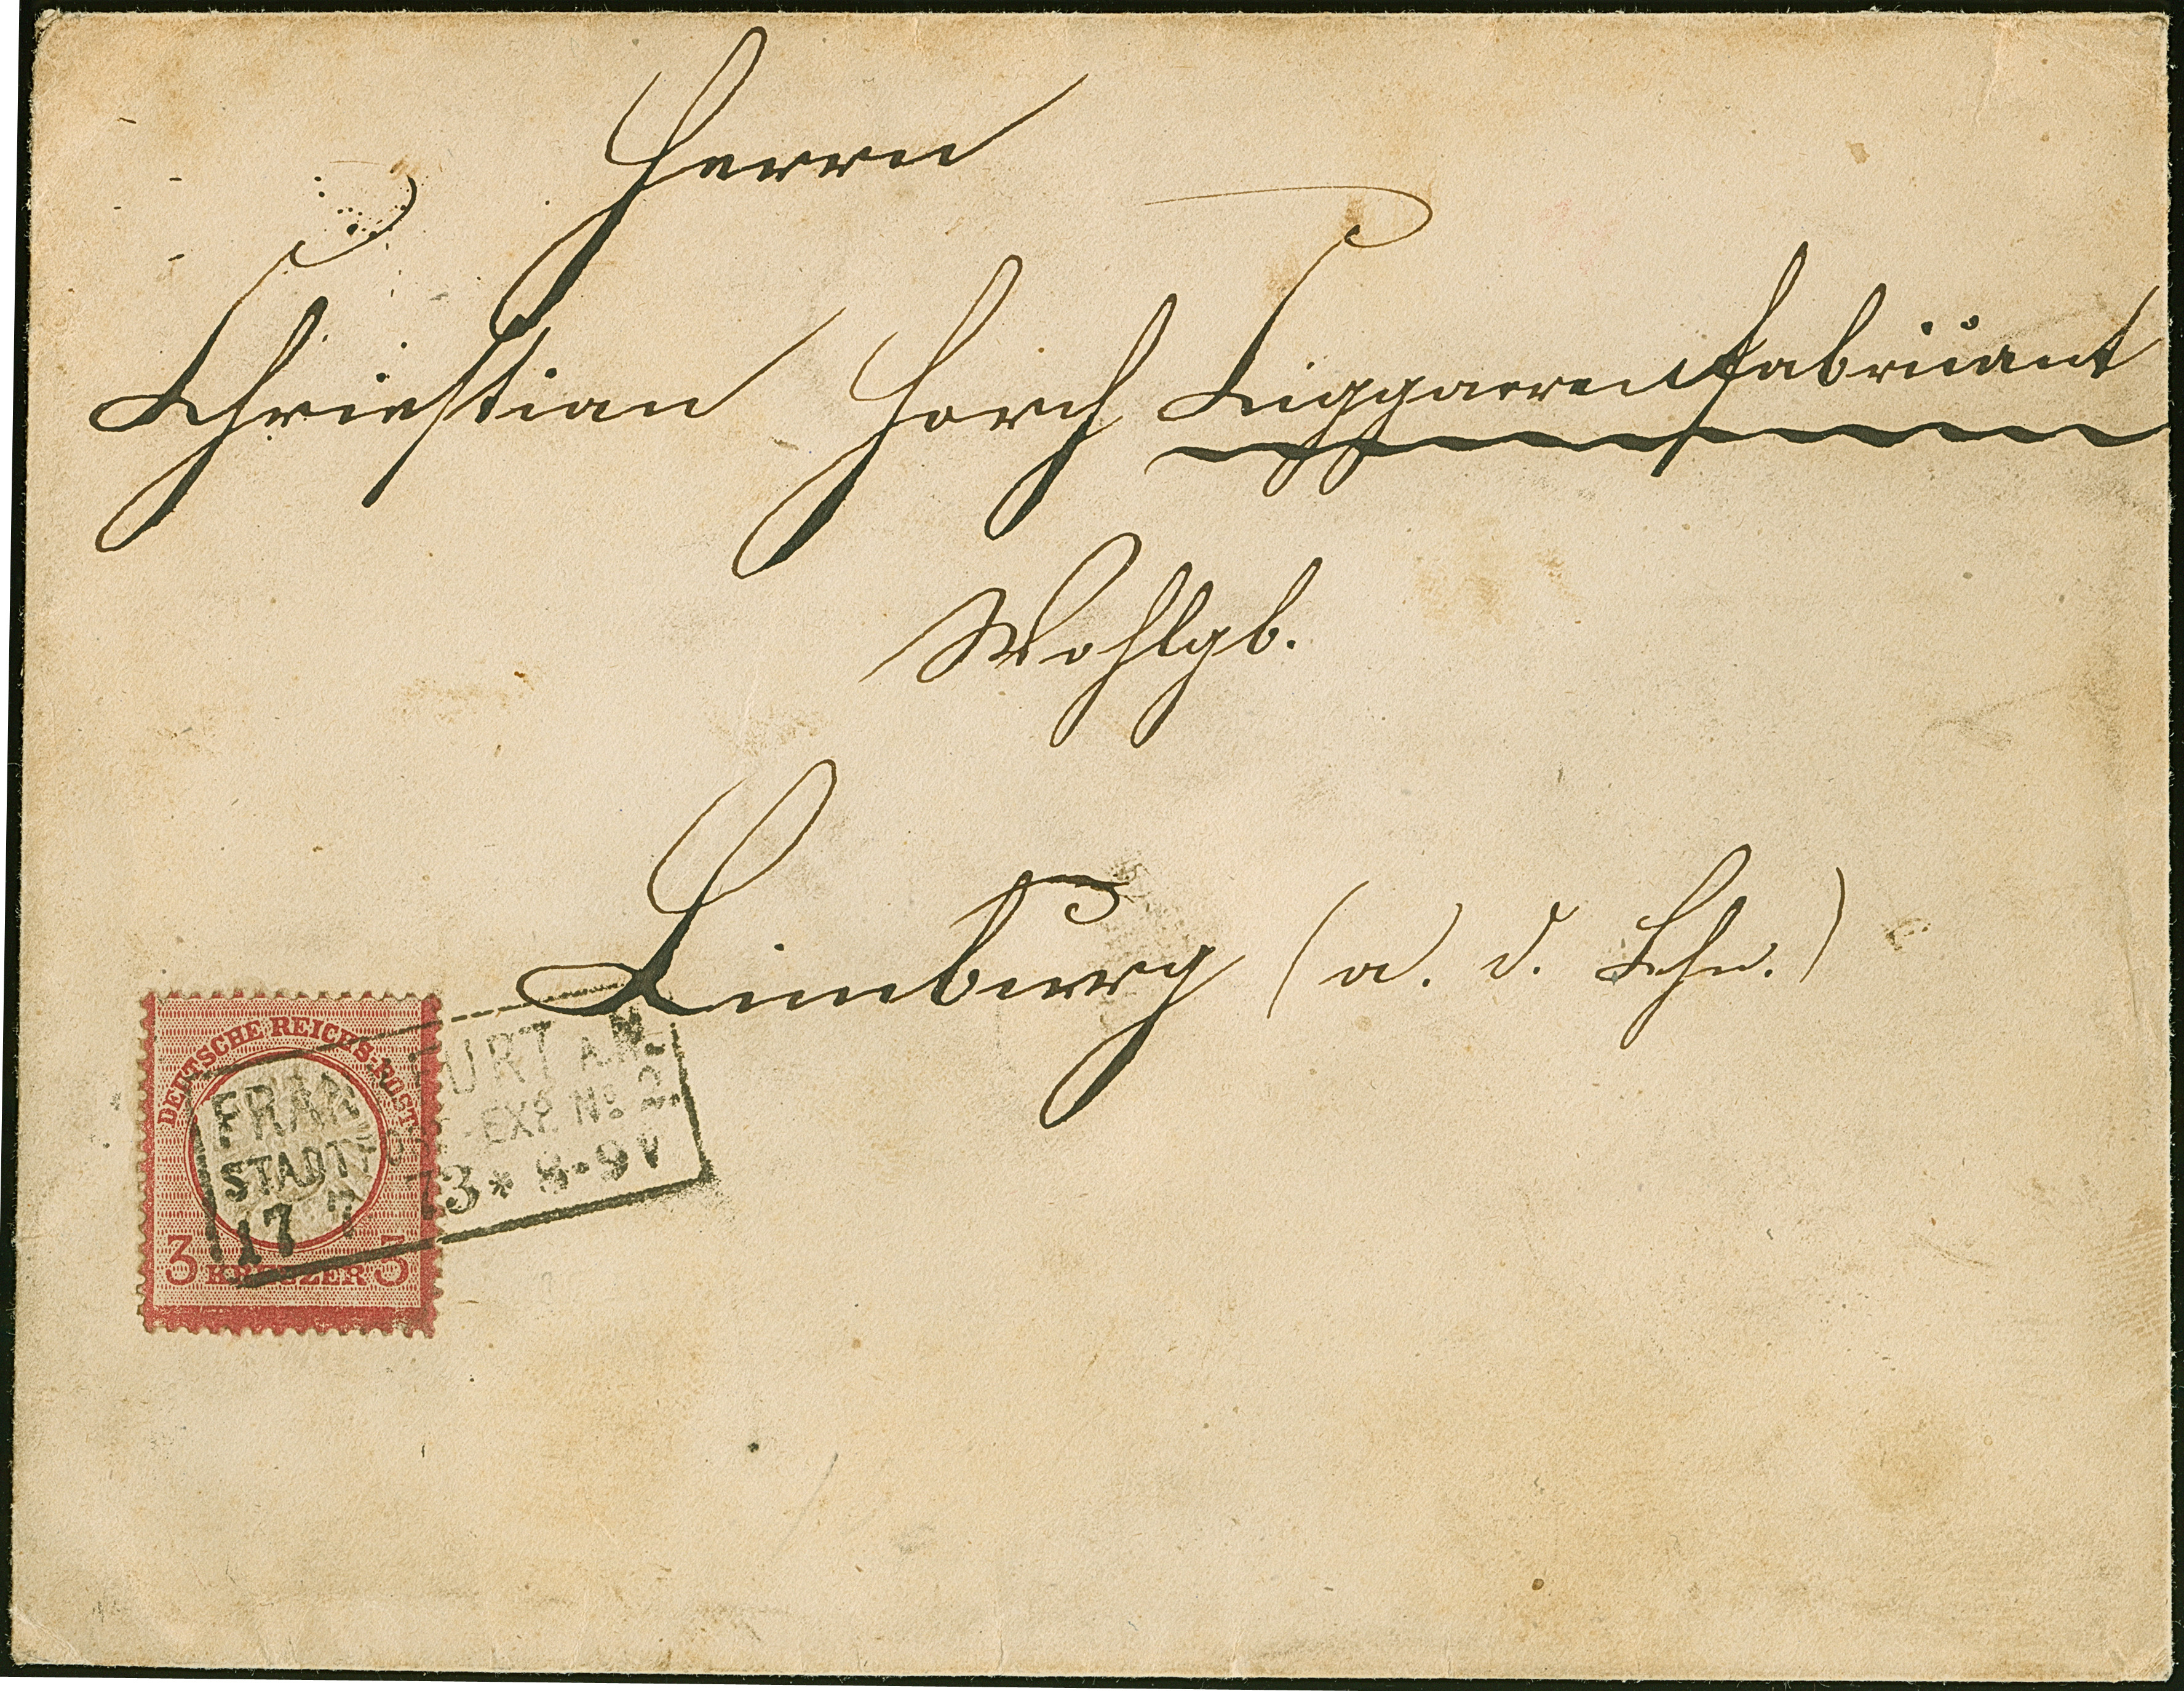 Herrn
Chriestian Horch Ciggarrenfabrikant
Wohlgb.
Limburg (a. d. Lhn.)
DEUTSCHE REICHS-POST
3 KREUZER 3
FRANKFURT A.M.
STADTPOST-EXP. No. 2.
17 7 73 * 8-9 V